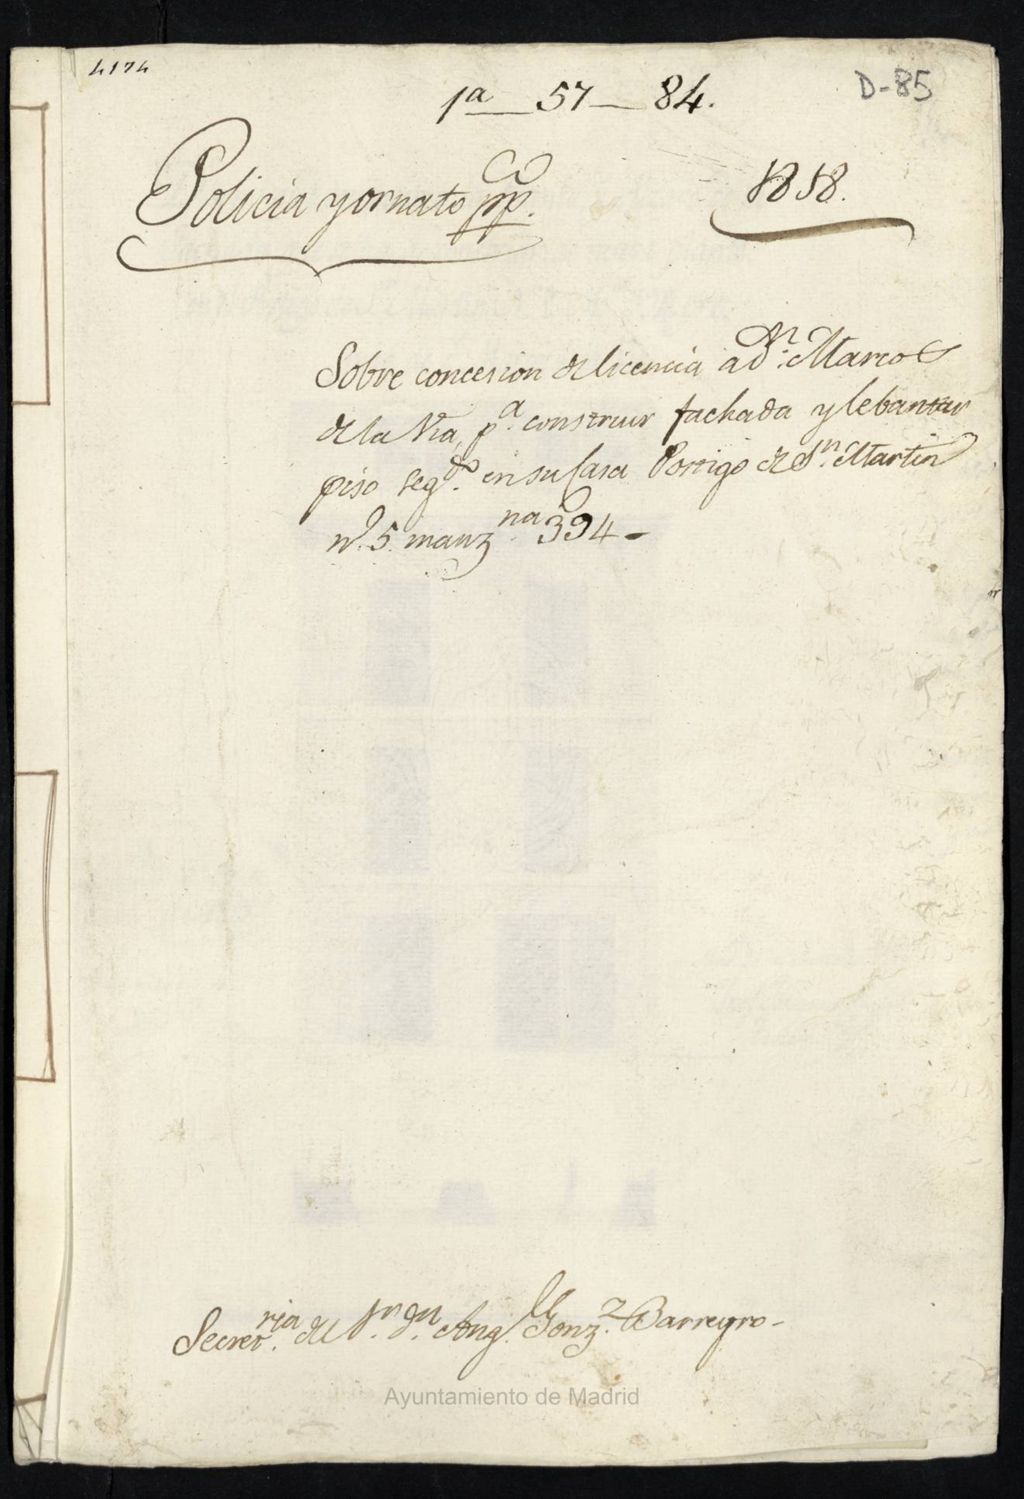 4174
1ª 57 84.
D-85
Policia y ornato pp.co
1818.
Sobre concesion de licencia a Dn. Marcos
de la Via, pa. construir fachada y lebantar
piso segdo. en su Casa Postigo de Sn. Martin
no. 5 manzna. 394 -
Secretria. de Sr. Dn. Angl. Gonzz. Barreyro-
Ayuntamiento de Madrid